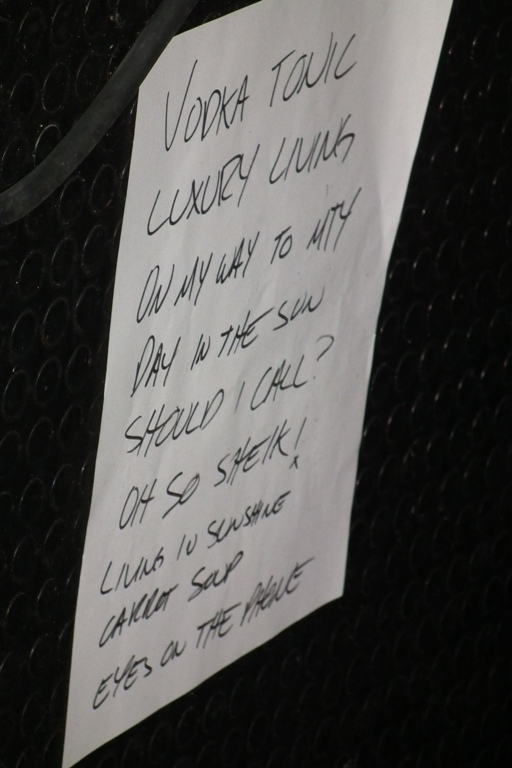 VODKA TONIC
LUXURY LIVING
ON MY WAY TO MTY
DAY IN THE SUN
SHOULD I CALL?
OH SO SHEIK!
LIVING IN SUNSHINE
CARROT SOUP
EYES ON THE PHONE